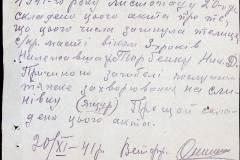 1941 року листопаду 20 дня
складено цього акта про те,
що цього числа загинула телиця
масті віком 3 років
Належавша Горбенку Ник. Д.
Причиною загибелі послужи
тяжке захворювання на сли
нівку (Ящур) Про що й скла
дено цього акта.
20/XI-41 р. Ветфр.